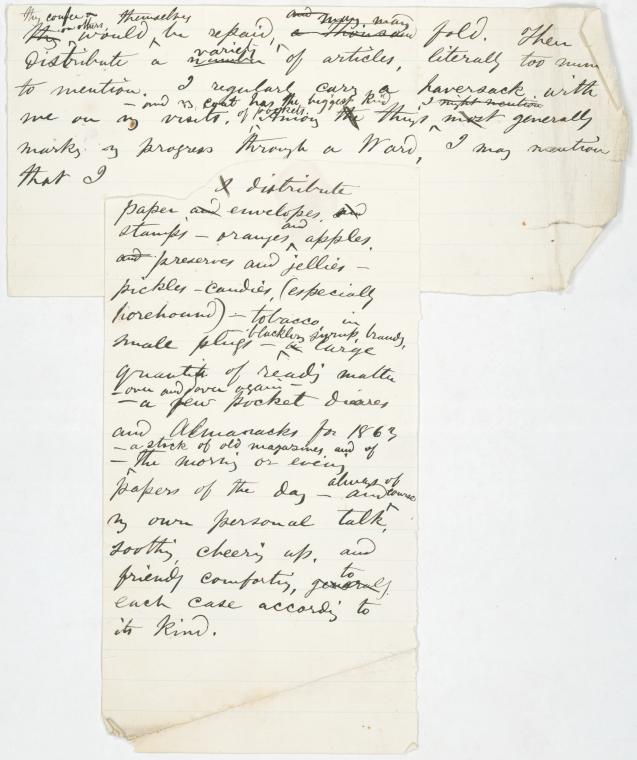 they confer on others,
themselves
and many many
they would be repaid, a thousand fold. Then
variety
distribute a number of articles, literally too num
to mention. I regularly carry a haversack with
– and my coat has the biggest kind of pockets.
I might mention
me on my visits. Among the things most generally
marking my progress through a Ward, I may mention
that I
I distribute
paper and envelopes, and
and
stamps – oranges, apples,
and preserves and jellies –
pickles – candies, (especially
horehound) – tobacco, in
blackberry syrup, brandy,
small plugs – a large
quantity of reading matter
– over and over again –
– a few pocket diaries
and Almanacks for 1863
– a stock of old magazines, and of
– the morning or evening
always of course
papers of the day – and
my own personal talk,
soothing, cheering up, and
to
friendly comforting, generally,
each case according to
its kind.